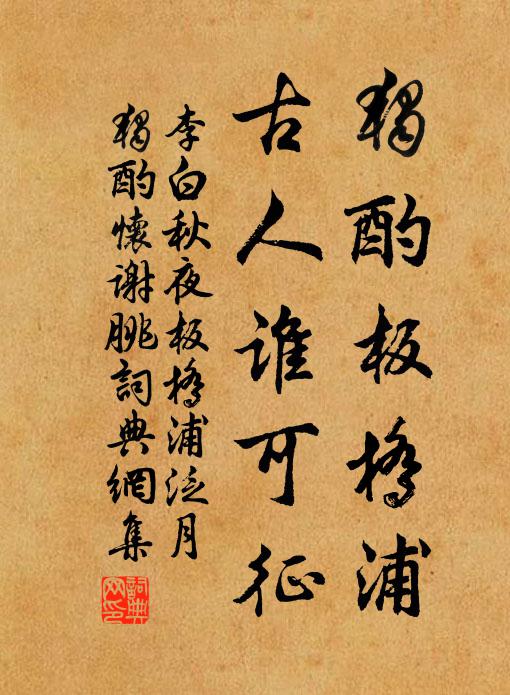 獨酌板橋浦
古人誰可征
李白秋夜板橋浦泛月
獨酌懷謝朓詞典網集
詞典網印